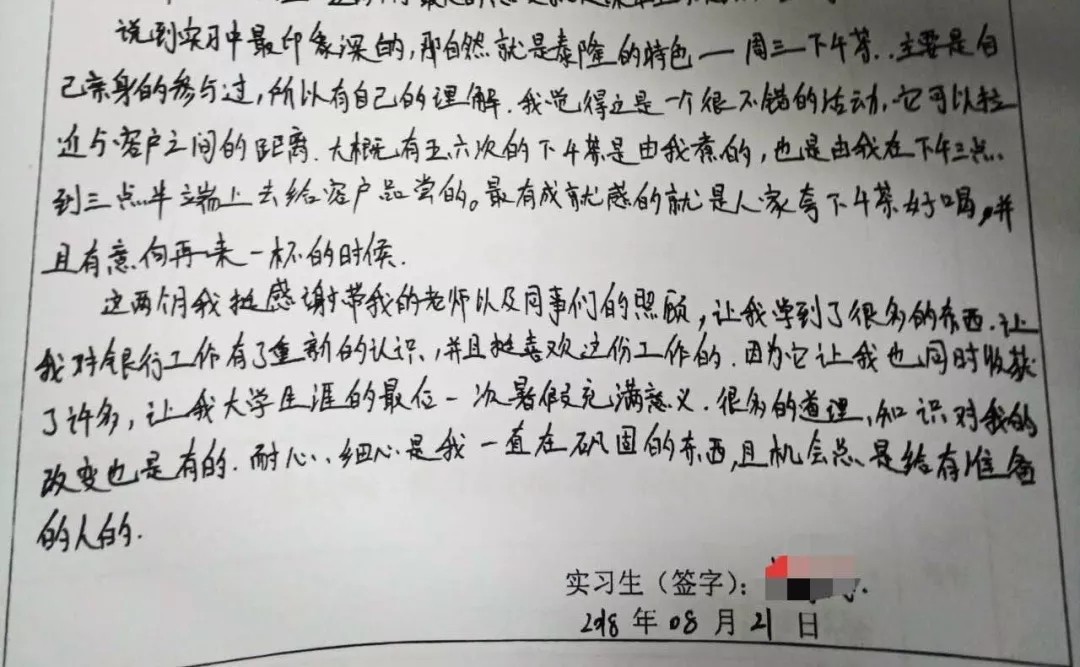 说到实习中最印象深的，那自然就是泰隆的特色一周三下午茶. 主要是自
己亲身的参与过，所以有自己的理解. 我觉得这是一个很不错的活动，它可以拉
近与客户之间的距离. 大概有五六次的下午茶是由我煮的，也是由我在下午三点
到三点半立端上去给客户品尝的。最有成就感的就是人家夸下午茶好喝，并
且有意向再来一杯的时候.
这两个月我挺感谢带我的老师以及同事们的照顾，让我学到了很多的东西. 让
我对银行工作有了重新的认识，并且挺喜欢这份工作的. 因为它让我也同时收获
了许多，让我大学生涯的最后一次暑假充满意义. 很多的道理、知识对我的
改变也是有的. 耐心、细心是我一直在巩固的东西，且机会总是给有准备
的人的.
实习生（签字）：
2018 年 08 月 21 日